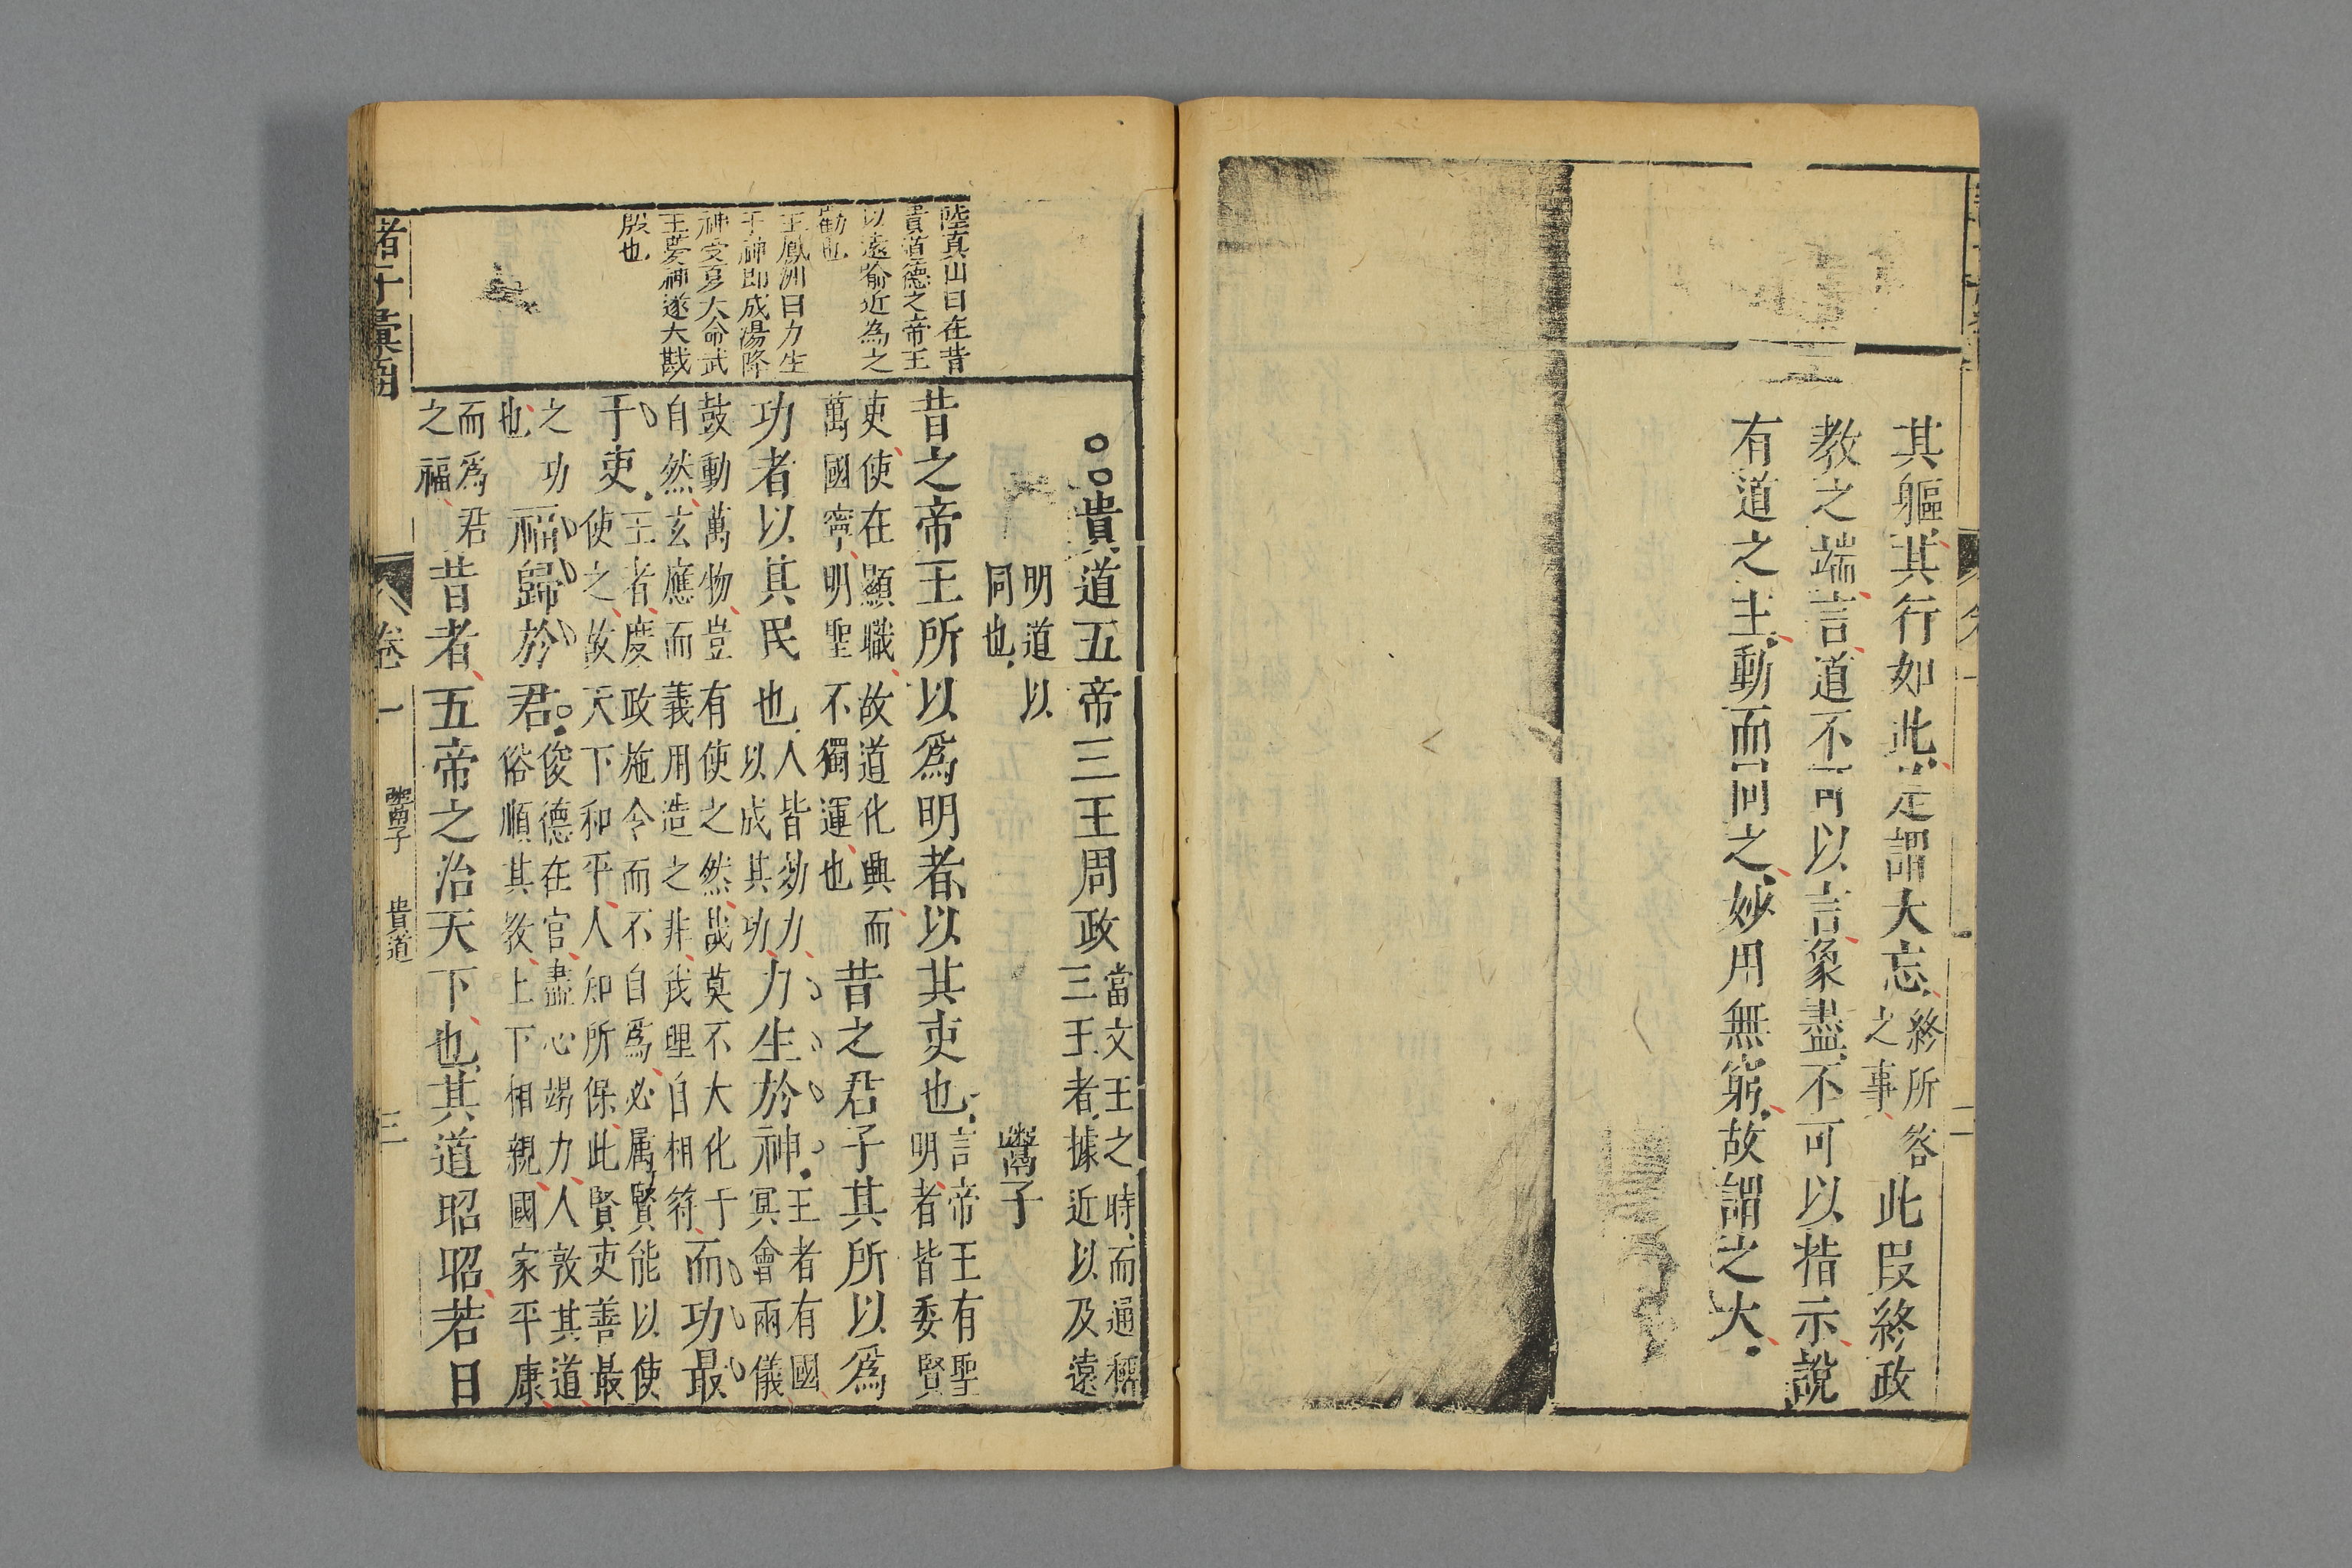 其軀其行如此是謂大忘終所答之事此叚終政
教之端言道不可以言象盡不可以指示說
有道之主動而同之妙用無窮故謂之大
陸真山曰在昔
貴道德之帝王
以遠喻近為之
勸也
王鳳洲曰力生
于神即成湯降
神受享大命武
王夢神遂大戡
殷也
貴道五帝三王周政當文王之時而通稱三王者據近以及遠
明道以同也
鬻子
昔之帝王所以爲明者以其吏也言帝王有聖明者皆委賢
吏使在顯職故道化興而萬國寧明聖不獨運也昔之君子其所以爲
功者以其民也人皆効力以成其功力生於神王者有國冥會兩儀
鼓動萬物豈有使之然哉莫不大化于自然玄應而義用造之非我理自相符而功最
于吏王者度政施令而不自爲必属賢能以使使之故天下和平人知所保此賢吏善最
之功也福歸於君俊德在官盡心竭力人敦其道俗順其教上下相親國家平康
而爲君之福昔者五帝之治天下也其道昭昭若日
諸子彙函
卷一
鬻子
貴道
三